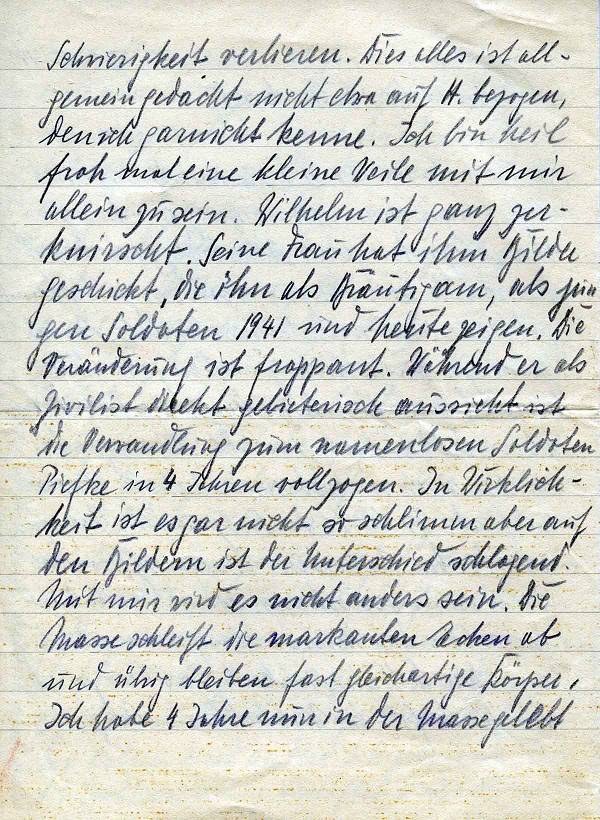 Schwierigkeit verlieren. Dies alles ist all-
gemein gedacht nicht etwa auf H. bezogen,
den ich garnicht kenne. Ich bin heil
froh mal eine kleine Weile mit mir
allein zu sein. Wilhelm ist ganz zer-
knirscht. Seine Frau hat ihm Bilder
geschickt, die ihn als Bräutigam, als jun
gen Soldaten 1941 und heute zeigen. Die
Veränderung ist frappant. Während er als
Zivilist direkt gebieterisch aussieht ist
die Verwandlung zum namenlosen Soldaten
Piefke in 4 Jahren vollzogen. In Wirklich-
keit ist es gar nicht so schlimm aber auf
den Bildern ist der Unterschied schlagend.
Mit mir wird es nicht anders sein. Die
Masse schleift die markanten Ecken ab
und übrig bleiben fast gleichartige Körper.
Ich habe 4 Jahre nun in der Masse gelebt